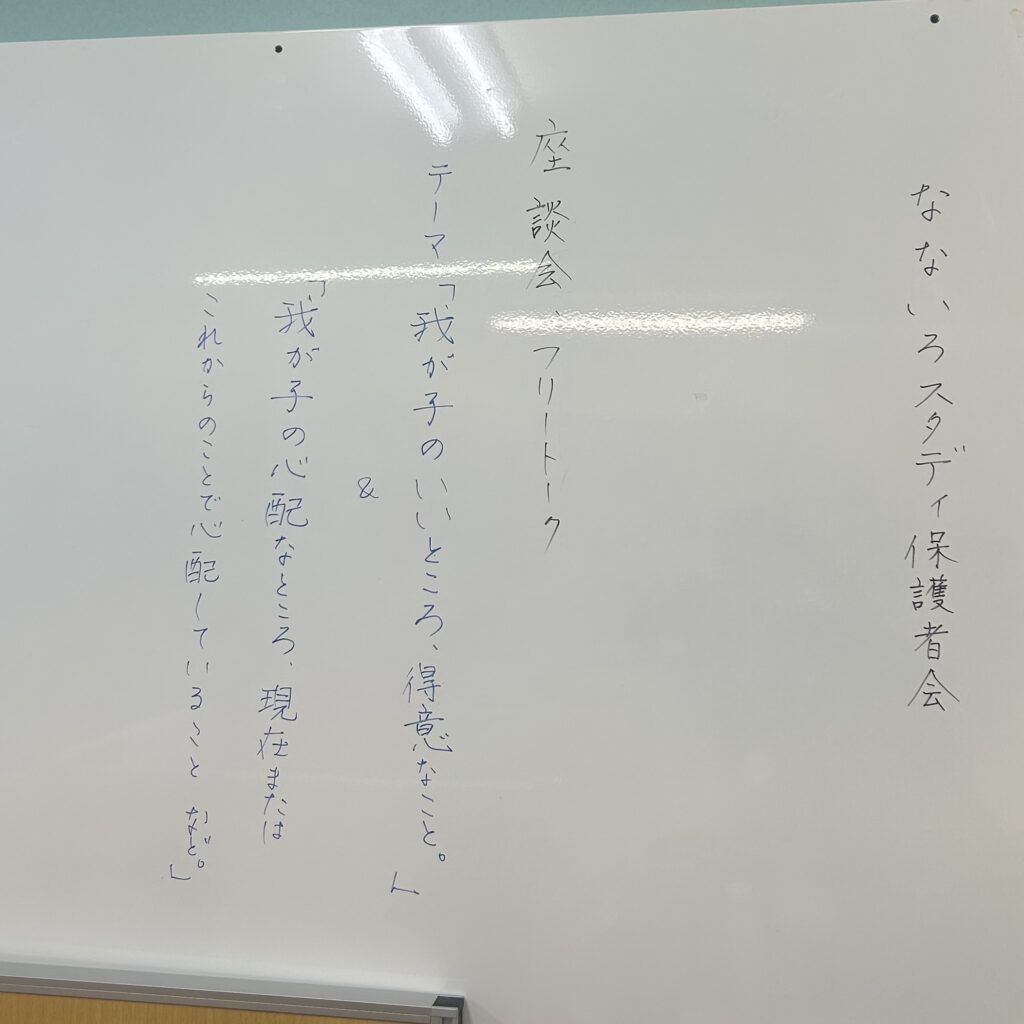 なないろスタディ保護者会
座談会、フリートーク
テーマ「我が子のいいところ、得意なこと。」
&
「我が子の心配なところ、現在または
これからのことで心配していること など。」